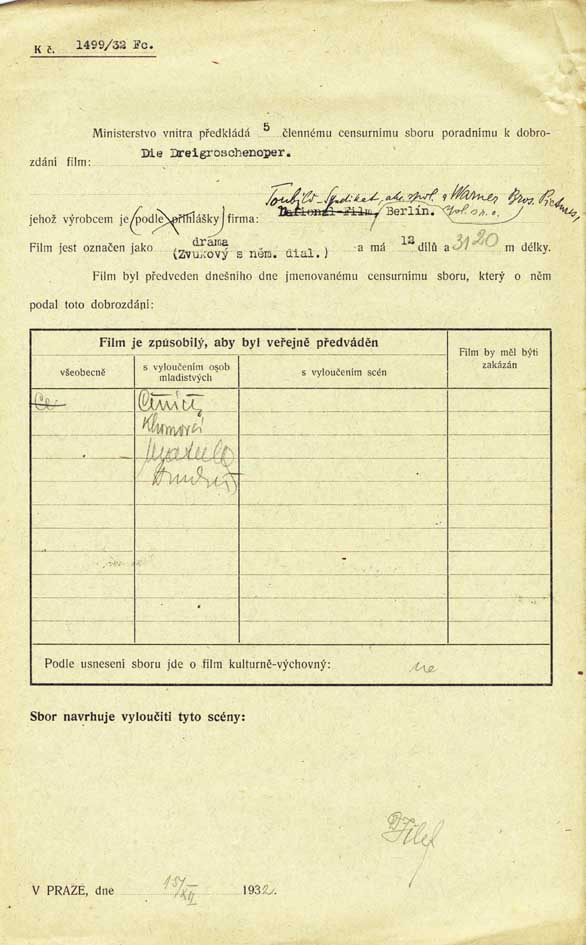 K č. 1499/32 Fc.
Ministerstvo vnitra předkládá 5 člennému censurnímu sboru poradnímu k dobro-
zdání film: Die Dreigroschenoper.
Tonbild-Syndikat, akc. spol. a Warner Bros. Pictures,
jehož výrobcem je (podle přihlášky) firma: National-Film, Berlin. spol. s r. o.
Film jest označen jako drama a má 12 dílů a 3120 m délky.
(Zvukový s něm. dial.)
Film byl předveden dnešního dne jmenovanému censurnímu sboru, který o něm
podal toto dobrozdání:
Film je způsobilý, aby byl veřejně předváděn
Film by měl býti
zakázán
všeobecně
s vyloučením osob
mladistvých
s vyloučením scén
Podle usnesení sboru jde o film kulturně-výchovný: ne
Sbor navrhuje vyloučiti tyto scény:
V PRAZE, dne 15/XII 1932.